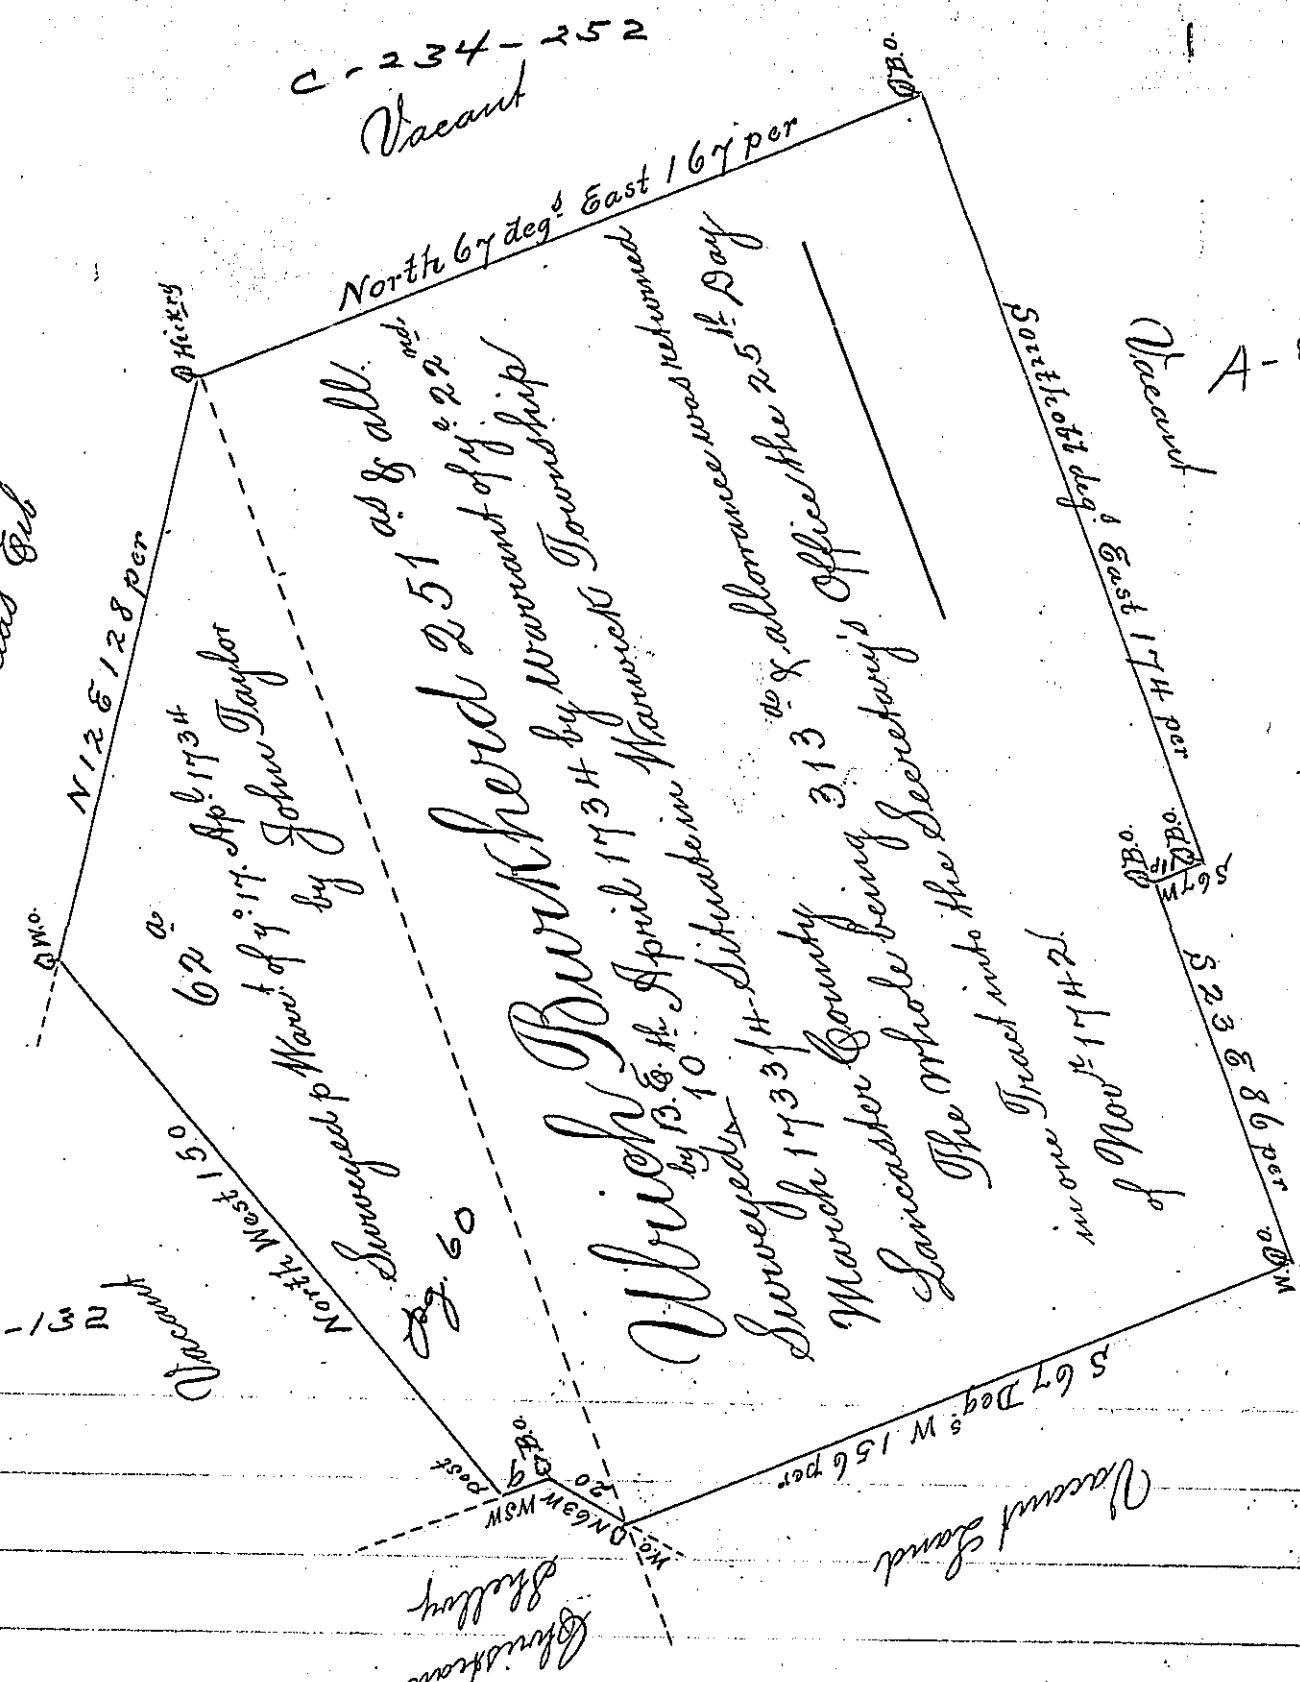 C - 234 - 252
Vacant
B.O.
North 67 degs. East 167 per
Hickry
N 12 E 128 per
W.o.
62 a.
Surveyed p Warrt. of ye. 17. Apl. 1734
by John Taylor
North West 150
-132
Vacant
pg. 60
Ulrich Burkherd 251 as. & all.
by B. E.
Surveyed 10 th. April 1734 by warrant of ye. 22 nd.
March 1733/4 Situate in Warwick Township
Lancaster County
The Whole being 313 as. & allowance was returned
in one Tract into the Secretary's Office the 25 th. Day
of Novr. 1742.
South 077 degs. East 174 per
Vacant
A -
B.O.
S 67 W
11 p
B.O.
S 23 E 86 per
W.O.
S 67 Degs. W 156 per
Vacant Land
W.o.
N 63 W
20
B.o.
9
WSW
post
Christian
Shelly